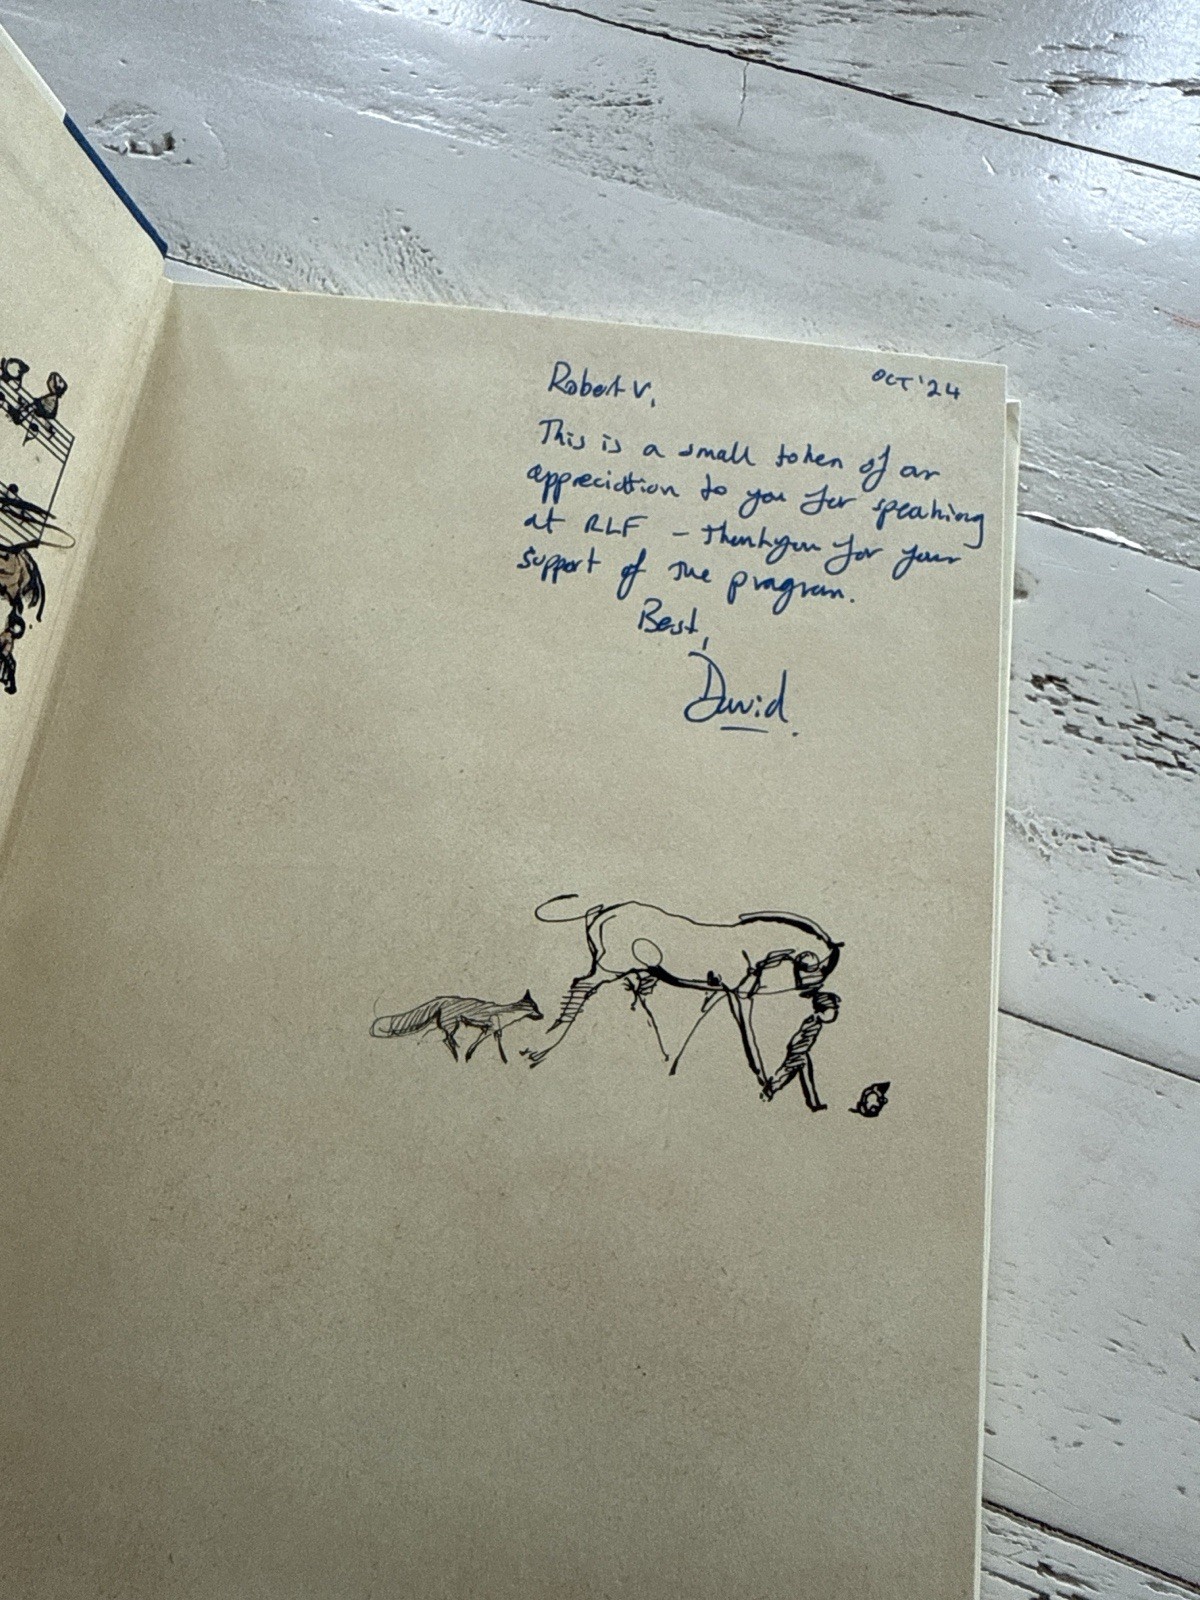 Robert V,
OCT '24
This is a small token of our
appreciation to you for speaking
at RLF – Thankyou for your
support of the program.
Best,
David.